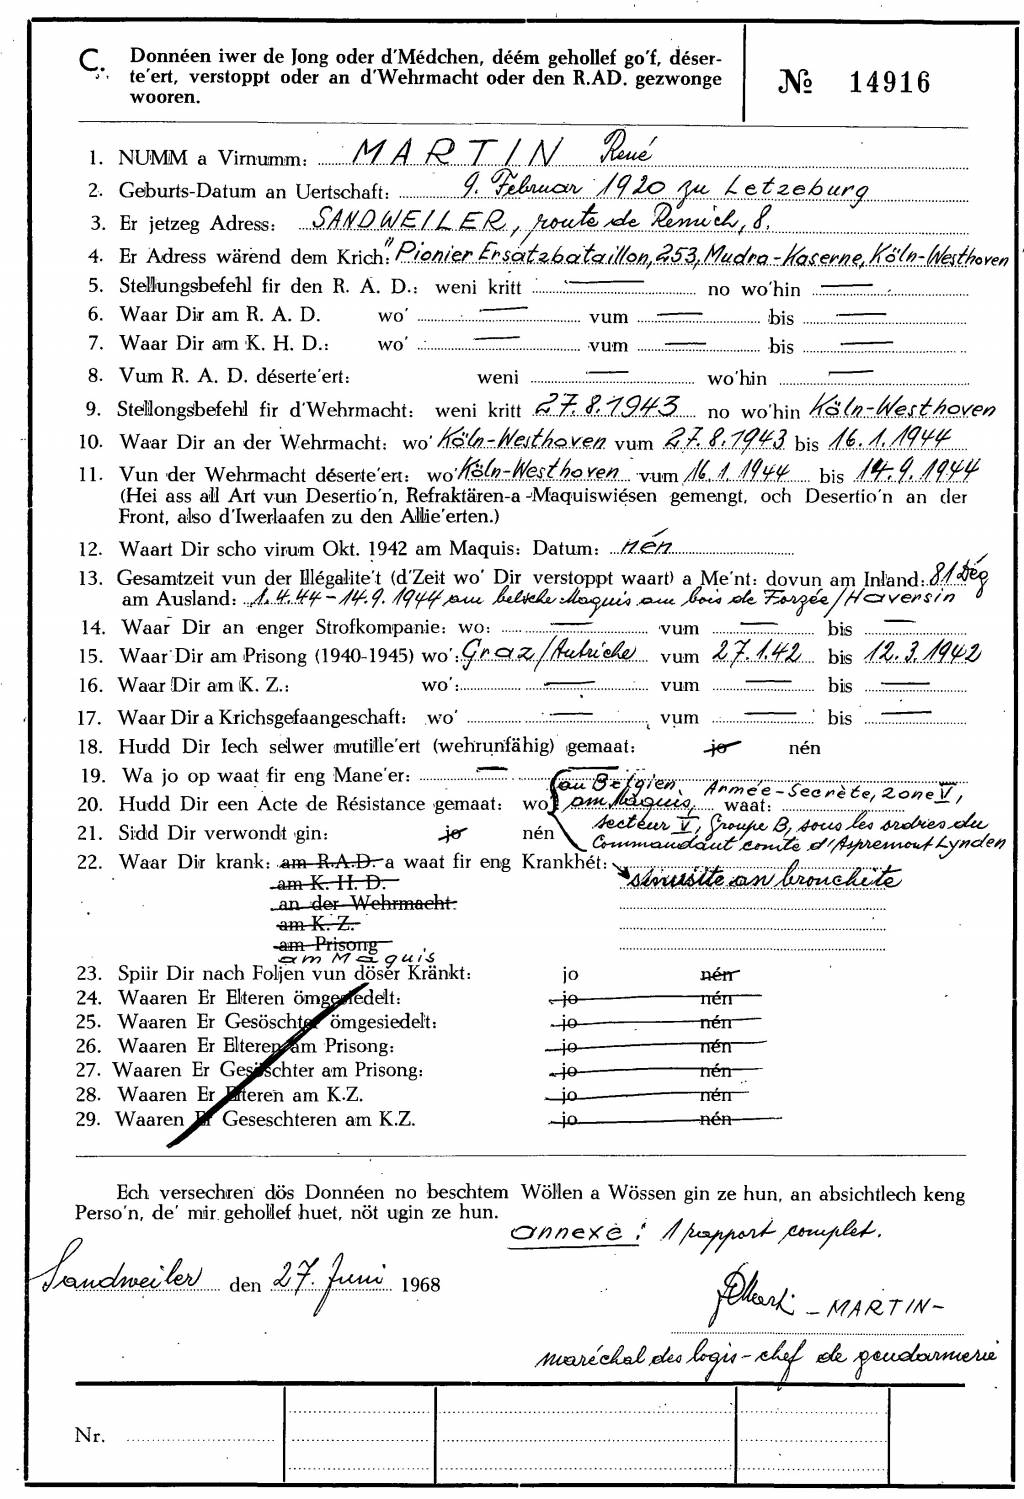 C. Donnéen iwer de Jong oder d'Médchen, déém gehollef go'f, déser-
te'ert, verstoppt oder an d'Wehrmacht oder den R.AD. gezwonge
wooren.
№ 14916
1. NUMM a Virnumm: MARTIN René
2. Geburts-Datum an Uertschaft: 9. Februar 1920 zu Letzeburg
3. Er jetzeg Adress: SANDWEILER, route de Remich, 8.
4. Er Adress wärend dem Krich: "Pionier Ersatzbataillon, 253, Mudra-Kaserne, Köln-Westhoven
5. Stellungsbefehl fir den R. A. D.: weni kritt — no wo'hin —
6. Waar Dir am R. A. D. wo' — vum — bis —
7. Waar Dir am K. H. D.: wo' — vum — bis —
8. Vum R. A. D. déserte'ert: weni — wo'hin —
9. Stellongsbefehl fir d'Wehrmacht: weni kritt 27.8.1943 no wo'hin Köln-Westhoven
10. Waar Dir an der Wehrmacht: wo' Köln-Westhoven vum 27.8.1943 bis 16.1.1944
11. Vun der Wehrmacht déserte'ert: wo' Köln-Westhoven vum 16.1.1944 bis 14.9.1944
(Hei ass all Art vun Desertio'n, Refraktären-a-Maquiswiésen gemengt, och Desertio'n an der
Front, also d'Iwerlaafen zu den Allie'erten.)
12. Waart Dir scho virum Okt. 1942 am Maquis: Datum: nén
13. Gesamtzeit vun der Illégalite't (d'Zeit wo' Dir verstoppt waart) a Me'nt: dovun am Inland: 81 Dég
am Ausland: 1.4.44-14.9.1944 am belsche Maquis am bois de Forzée/Haversin
14. Waar Dir an enger Strofkompanie: wo: — vum — bis —
15. Waar Dir am Prisong (1940-1945) wo': Graz/Autriche vum 27.1.42 bis 12.3.1942
16. Waar Dir am K. Z.: wo': — vum — bis —
17. Waar Dir a Krichsgefaangeschaft: wo' — vum — bis —
18. Hudd Dir Iech selwer mutille'ert (wehrunfähig) gemaat: jo nén
19. Wa jo op waat fir eng Mane'er: —
20. Hudd Dir een Acte de Résistance gemaat: wo' au Belgien, am Maquis, waat: Armée-Secrète, zone V,
secteur V, Groupe B, sous les ordres du
Commandant comte d'Aspremont Lynden
21. Sidd Dir verwondt gin: jo nén
22. Waar Dir krank: am R.A.D. a waat fir eng Krankhét: sinusite an bronchite
am K. H. D.
an der Wehrmacht
am K. Z.
am Prisong
am Maquis
23. Spiir Dir nach Foljen vun döser Kränkt: jo nén
24. Waaren Er Elteren ömgesiedelt: jo nén
25. Waaren Er Gesöschter ömgesiedelt: jo nén
26. Waaren Er Elteren am Prisong: jo nén
27. Waaren Er Gesöschter am Prisong: jo nén
28. Waaren Er Elteren am K.Z. jo nén
29. Waaren Er Geseschteren am K.Z. jo nén
Ech versechren dös Donnéen no beschtem Wöllen a Wössen gin ze hun, an absichtlech keng
Perso'n, de' mir gehollef huet, nöt ugin ze hun.
annexe: 1 rapport complet.
Sandweiler den 27. Juni 1968
-MARTIN-
maréchal des logis-chef de gendarmerie
Nr.